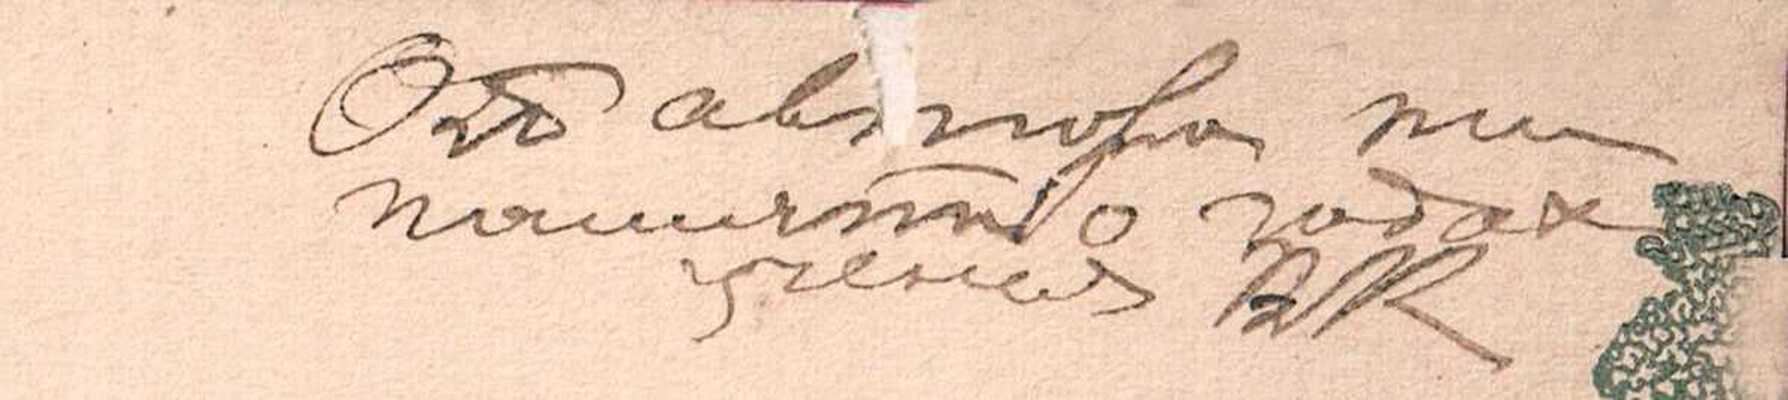 Отъ автора на
память о годах
учения ВК